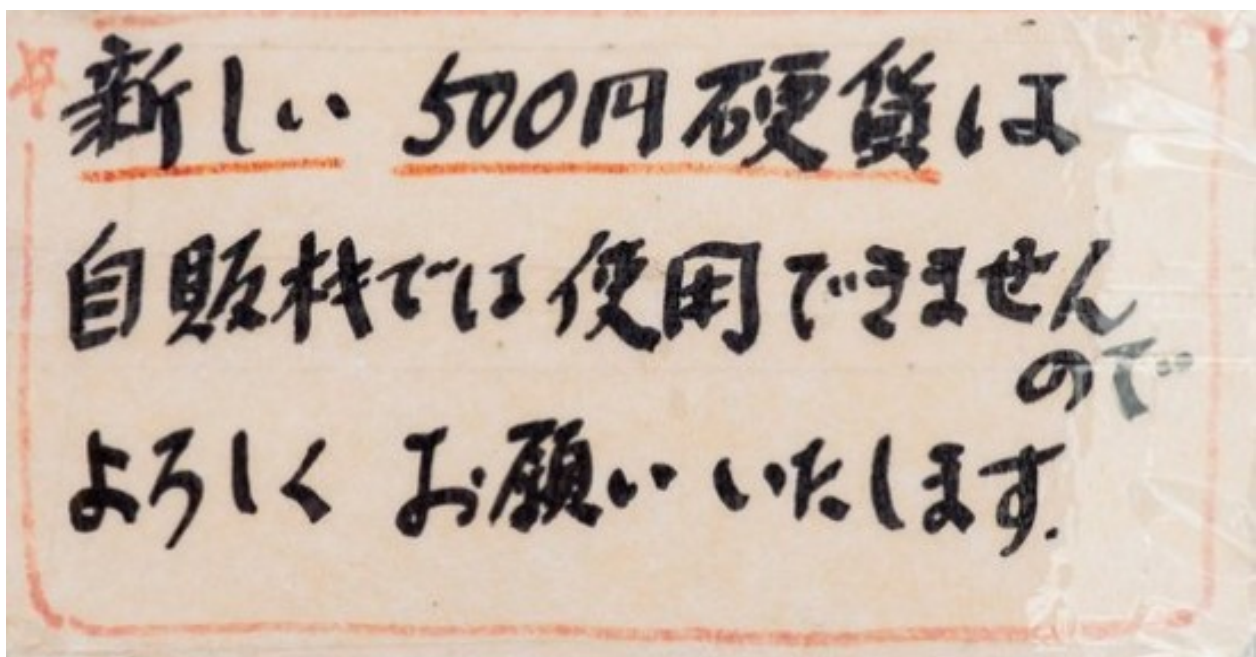 ☆新しい 500円硬貨は
自販机では使用できません
ので
よろしく お願いいたします.